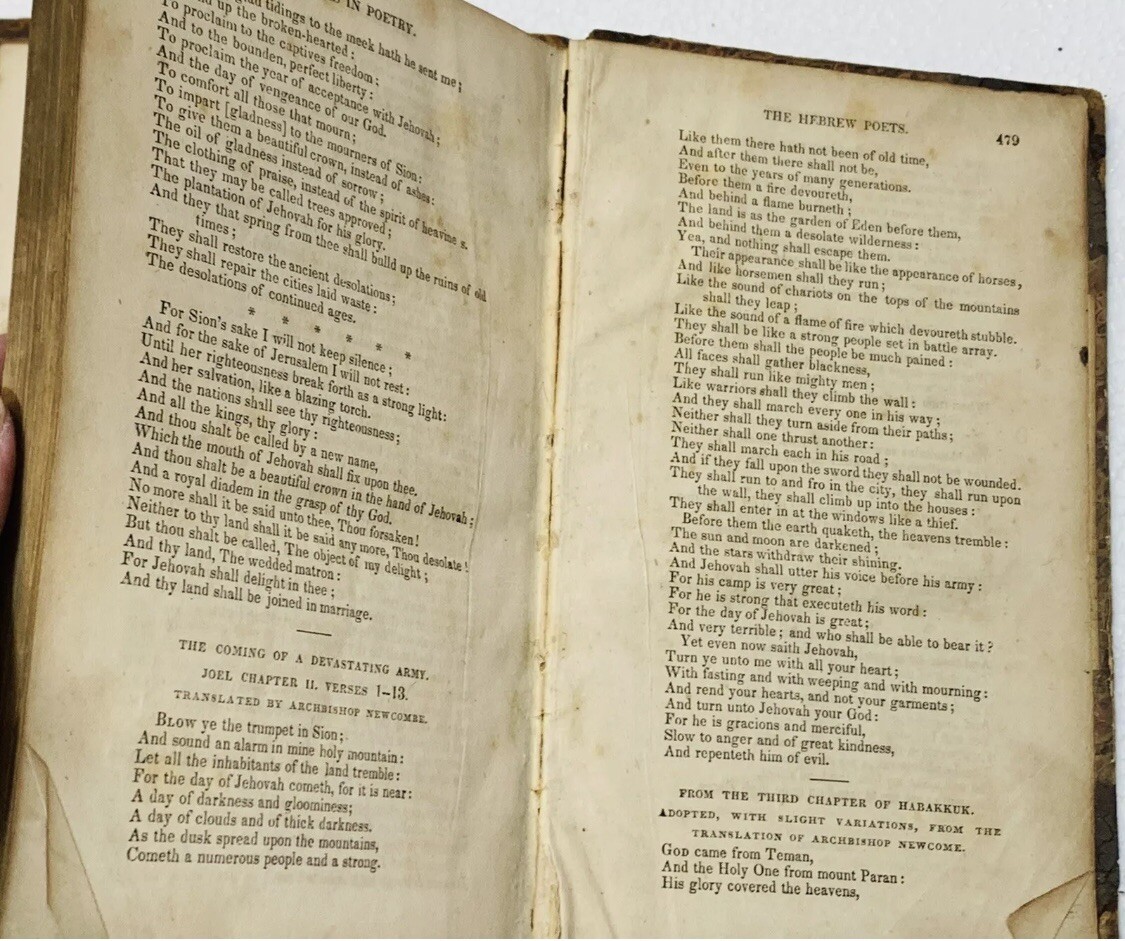 IN POETRY.
tidings to the meek hath he sent me;
up the broken-hearted:
To proclaim to the captives freedom;
And to the bounden, perfect liberty:
To proclaim the year of acceptance with Jehovah;
And the day of vengeance of our God.
To comfort all those that mourn;
To impart [gladness] to the mourners of Sion;
To give them a beautiful crown, instead of ashes:
The oil of gladness instead of sorrow;
The clothing of praise, instead of the spirit of heavines s.
That they may be called trees approved;
The plantation of Jehovah for his glory.
And they that spring from thee shall build up the ruins of old
times;
They shall restore the ancient desolations;
They shall repair the cities laid waste:
The desolations of continued ages.
* * * * * *
For Sion's sake I will not keep silence;
And for the sake of Jerusalem I will not rest:
Until her righteousness break forth as a strong light:
And her salvation, like a blazing torch.
And the nations shall see thy righteousness;
And all the kings, thy glory:
And thou shalt be called by a new name,
Which the mouth of Jehovah shall fix upon thee.
And thou shalt be a beautiful crown in the hand of Jehovah;
And a royal diadem in the grasp of thy God.
No more shall it be said unto thee, Thou forsaken!
Neither to thy land shall it be said any more, Thou desolate!
But thou shalt be called, The object of my delight;
And thy land, The wedded matron:
For Jehovah shall delight in thee;
And thy land shall be joined in marriage.
THE COMING OF A DEVASTATING ARMY.
JOEL CHAPTER II. VERSES 1-13.
TRANSLATED BY ARCHBISHOP NEWCOMBE.
BLOW ye the trumpet in Sion;
And sound an alarm in mine holy mountain:
Let all the inhabitants of the land tremble:
For the day of Jehovah cometh, for it is near:
A day of darkness and gloominess;
A day of clouds and of thick darkness.
As the dusk spread upon the mountains,
Cometh a numerous people and a strong.
THE HEBREW POETS. 479
Like them there hath not been of old time,
And after them there shall not be,
Even to the years of many generations.
Before them a fire devoureth,
And behind a flame burneth;
The land is as the garden of Eden before them,
And behind them a desolate wilderness:
Yea, and nothing shall escape them.
Their appearance shall be like the appearance of horses,
And like horsemen shall they run;
Like the sound of chariots on the tops of the mountains
shall they leap;
Like the sound of a flame of fire which devoureth stubble.
They shall be like a strong people set in battle array.
Before them shall the people be much pained:
All faces shall gather blackness,
They shall run like mighty men;
Like warriors shall they climb the wall:
And they shall march every one in his way;
Neither shall they turn aside from their paths;
Neither shall one thrust another:
They shall march each in his road;
And if they fall upon the sword they shall not be wounded.
They shall run to and fro in the city, they shall run upon
the wall, they shall climb up into the houses:
They shall enter in at the windows like a thief.
Before them the earth quaketh, the heavens tremble:
The sun and moon are darkened;
And the stars withdraw their shining.
And Jehovah shall utter his voice before his army:
For his camp is very great;
For he is strong that executeth his word:
For the day of Jehovah is great;
And very terrible; and who shall be able to bear it?
Yet even now saith Jehovah,
Turn ye unto me with all your heart;
With fasting and with weeping and with mourning:
And rend your hearts, and not your garments;
And turn unto Jehovah your God:
For he is gracious and merciful,
Slow to anger and of great kindness,
And repenteth him of evil.
FROM THE THIRD CHAPTER OF HABAKKUK.
ADOPTED, WITH SLIGHT VARIATIONS, FROM THE
TRANSLATION OF ARCHBISHOP NEWCOME.
GOD came from Teman,
And the Holy One from mount Paran:
His glory covered the heavens,